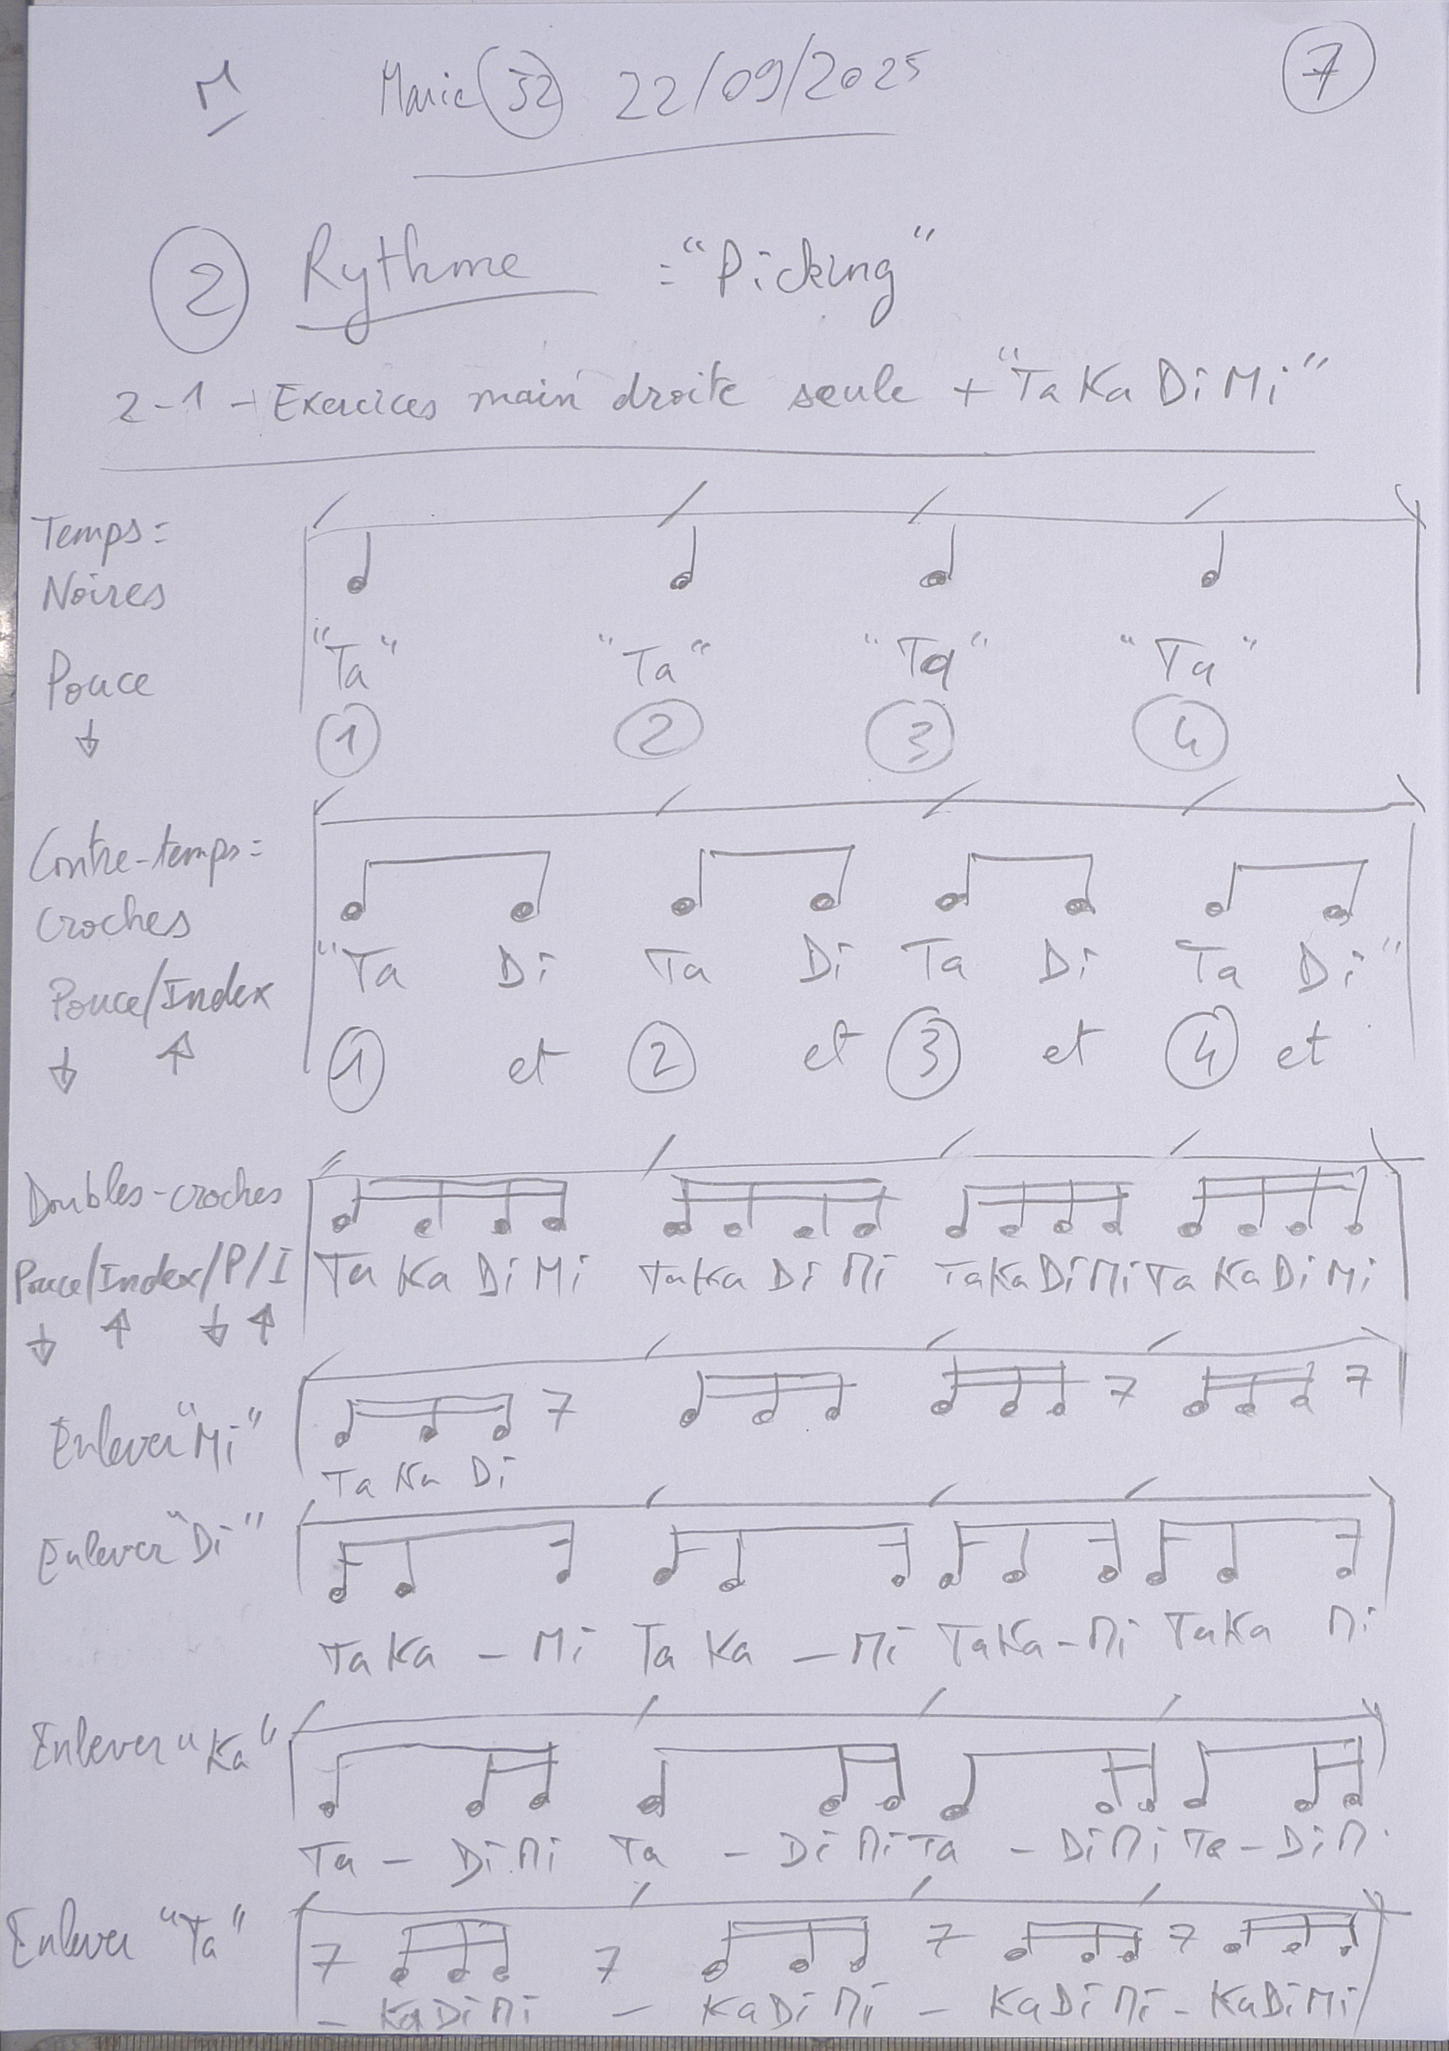 M Marie 32 22/09/2025 7
2 Rythme = "Picking"
2-1 - Exercices main droite seule + "TaKaDiMi"
Temps =
Noires
Pouce
"Ta" "Ta" "Ta" "Ta"
1 2 3 4
Contre-temps =
Croches
Pouce/Index
"Ta Di Ta Di Ta Di Ta Di"
1 et 2 et 3 et 4 et
Doubles-croches
Pouce/Index/P/I Ta Ka Di Mi Ta Ka Di Mi Ta Ka Di Mi Ta Ka Di Mi
Enlever "Mi"
Ta Ka Di
Enlever "Di"
Ta Ka - Mi Ta Ka - Mi Ta Ka - Mi Ta Ka Mi
Enlever "Ka"
Ta - Di Mi Ta - Di Mi Ta - Di Mi Ta - Di M
Enlever "Ta"
- Ka Di Mi - Ka Di Mi - Ka Di Mi - Ka Di Mi